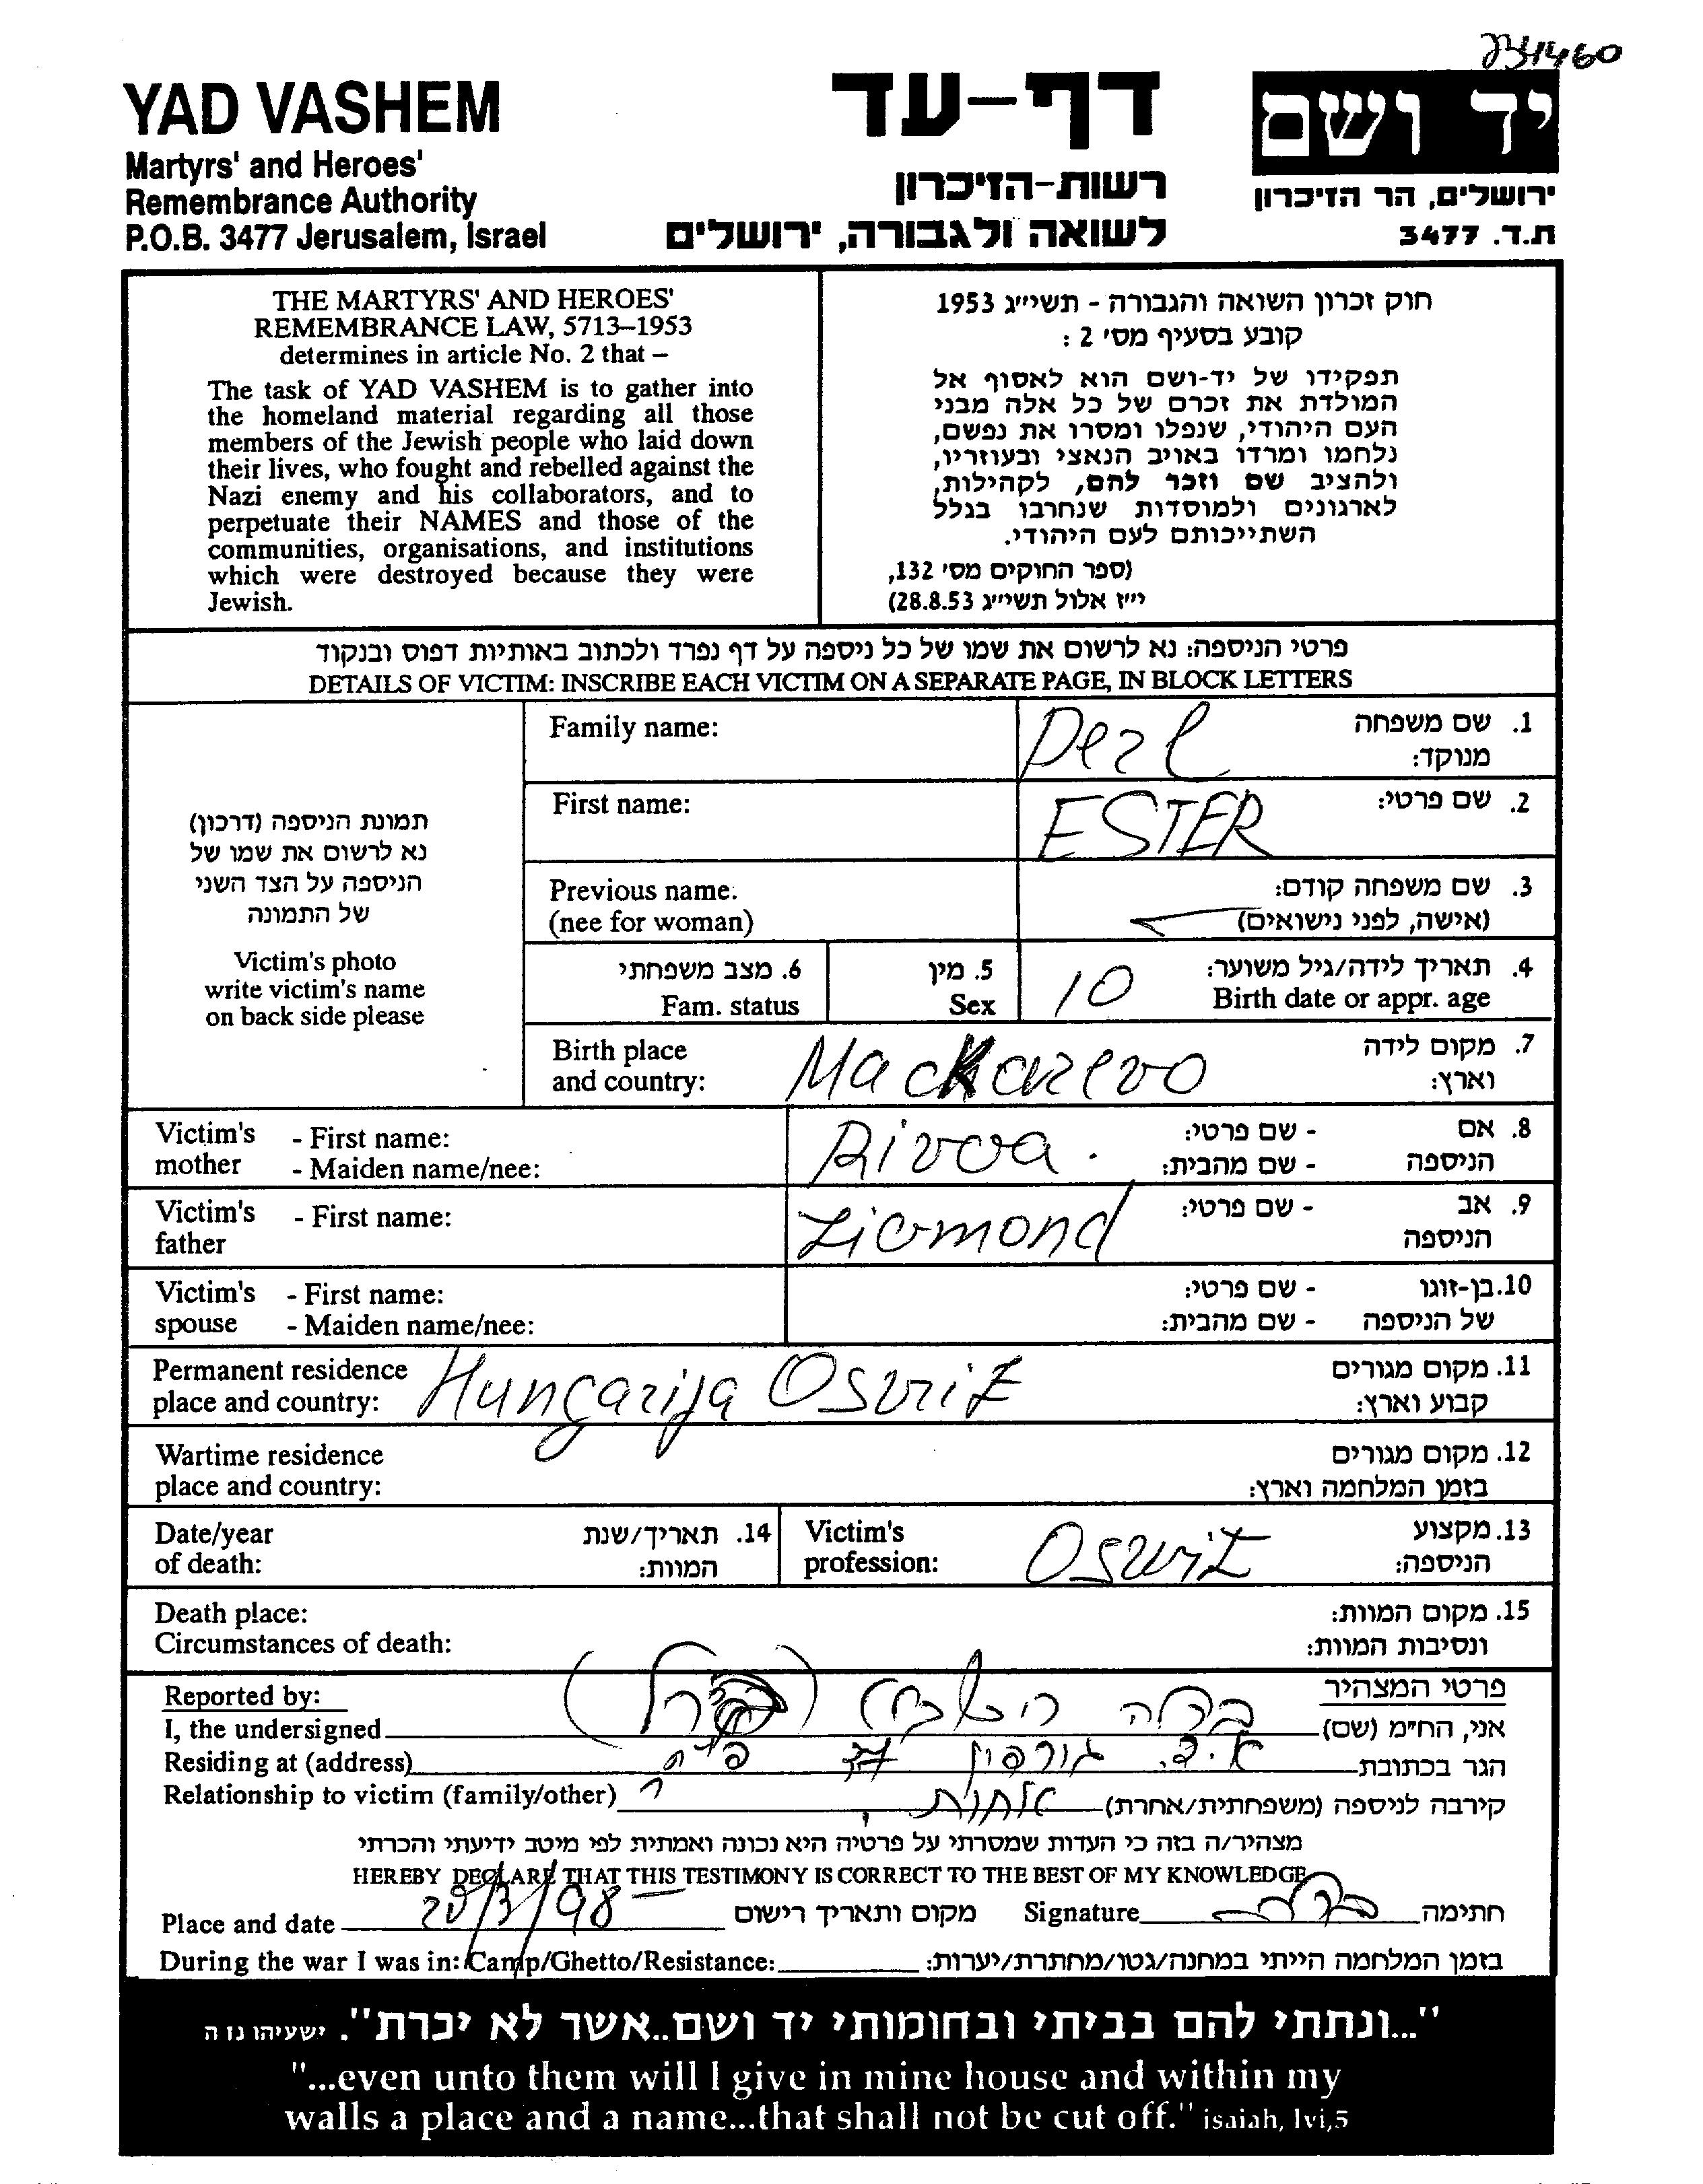 YAD VASHEM
Martyrs' and Heroes'
Remembrance Authority
P.O.B. 3477 Jerusalem, Israel
דף-עד
רשות-הזיכרון
לשואה ולגבורה, ירושלים
יד ושם
ירושלים, הר הזיכרון
ת.ד. 3477
THE MARTYRS' AND HEROES'
REMEMBRANCE LAW, 5713–1953
determines in article No. 2 that –
The task of YAD VASHEM is to gather into
the homeland material regarding all those
members of the Jewish people who laid down
their lives, who fought and rebelled against the
Nazi enemy and his collaborators, and to
perpetuate their NAMES and those of the
communities, organisations, and institutions
which were destroyed because they were
Jewish.
חוק זכרון השואה והגבורה - תשי״ג 1953
קובע בסעיף מס׳ 2 :
תפקידו של יד-ושם הוא לאסוף אל
המולדת את זכרם של כל אלה מבני
העם היהודי, שנפלו ומסרו את נפשם,
נלחמו ומרדו באויב הנאצי ובעוזריו,
ולהציב שם וזכר להם, לקהילות,
לארגונים ולמוסדות שנחרבו בגלל
השתייכותם לעם היהודי.
(ספר החוקים מס׳ 132,
י״ז אלול תשי״ג 28.8.53)
פרטי הניספה: נא לרשום את שמו של כל ניספה על דף נפרד ולכתוב באותיות דפוס ובנקוד
DETAILS OF VICTIM: INSCRIBE EACH VICTIM ON A SEPARATE PAGE, IN BLOCK LETTERS
תמונת הניספה (דרכון)
נא לרשום את שמו של
הניספה על הצד השני
של התמונה
Victim's photo
write victim's name
on back side please
Family name: Perl 1. שם משפחה
מנוקד:
First name: ESTER 2. שם פרטי:
Previous name: 3. שם משפחה קודם:
(nee for woman) (אישה, לפני נישואים)
6. מצב משפחתי 5. מין 4. תאריך לידה/גיל משוער:
Fam. status Sex 10 Birth date or appr. age
Birth place 7. מקום לידה
and country: Mackarevo וארץ:
Victim's - First name: Rivca. - שם פרטי: 8. אם
mother - Maiden name/nee: - שם מהבית: הניספה
Victim's - First name: - שם פרטי: 9. אב
father הניספה
Victim's - First name: - שם פרטי: 10. בן-זוגו
spouse - Maiden name/nee: - שם מהבית: של הניספה
Permanent residence 11. מקום מגורים
place and country: Hungarija Osvriz קבוע וארץ:
Wartime residence 12. מקום מגורים
place and country: בזמן המלחמה וארץ:
Date/year 14. תאריך/שנת Victim's 13. מקצוע
of death: המוות: profession: הניספה:
Death place: 15. מקום המוות:
Circumstances of death: ונסיבות המוות:
Reported by: פרטי המצהיר
I, the undersigned (פרל) ברטה אני, החי״מ (שם)
Residing at (address) הגר בכתובת
Relationship to victim (family/other) אחות קירבה לניספה (משפחתית/אחרת)
מצהיר/ה בזה כי העדות שמסרתי על פרטיה היא נכונה ואמתית לפי מיטב ידיעתי והכרתי
HEREBY DECLARE THAT THIS TESTIMONY IS CORRECT TO THE BEST OF MY KNOWLEDGE
Place and date 20/3/98 מקום ותאריך רישום Signature חתימה
During the war I was in: Camp/Ghetto/Resistance: בזמן המלחמה הייתי במחנה/גטו/מחתרת/יערות:
"...ונתתי להם בביתי ובחומותי יד ושם..אשר לא יכרת". ישעיהו נו ה
"...even unto them will I give in mine house and within my
walls a place and a name...that shall not be cut off." isaiah, lvi,5